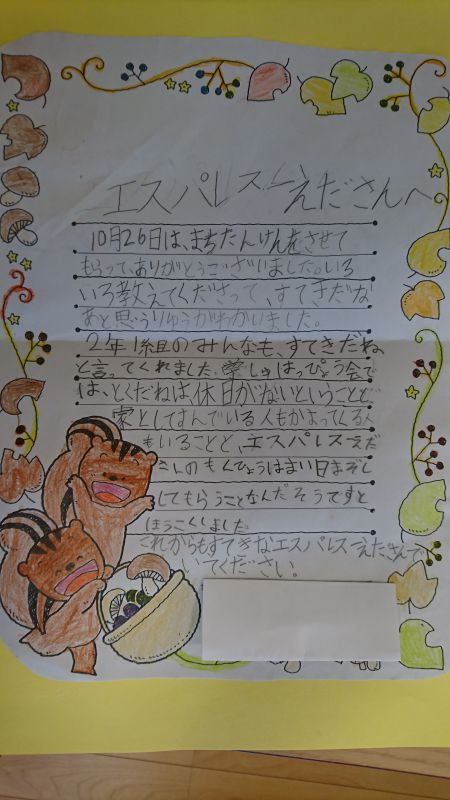 エスパレスえださんへ
10月26日は、まちたんけんをさせて
もらって、ありがとうございました。いろ
いろ教えてくださって、すてきだな
あと思うりゆうがわかいました。
2年1組のみんなも、すてきだね
と言ってくれました。学しゅうはっぴょう会で
は、とくだねは、休日がないということと、
家としてすんでいる人もかよってくる人
もいることと、エスパレスえだ
さんのもくひょうはまい日まんぞく
してもらうことなんだそうですと
ほうこくしました。
これからもすてきなエスパレスえださんで
いてください。